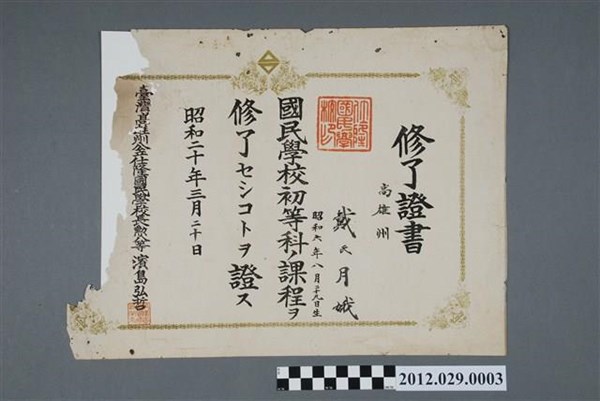 修了證書
高雄州
戴氏月娥
昭和六年八月十九日生
國民學校初等科ノ課程ヲ
修了セシコトヲ證ス
昭和二十年三月二十日
濱島弘哲
2012.029.0003